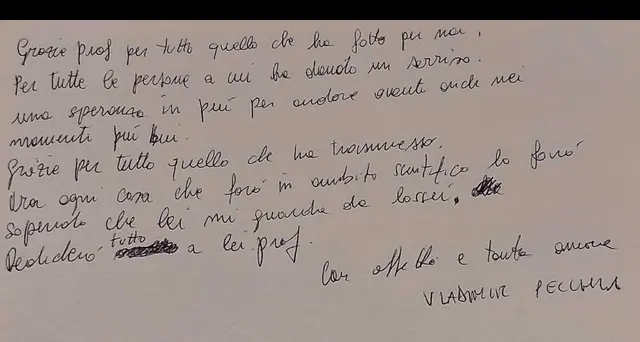 Grazie prof per tutto quello che ha fatto per noi.
Per tutte le persone a cui ha donato un sorriso.
una speranza in più per andare avanti anche nei
momenti più bui.
Grazie per tutto quello che ha trasmesso.
Ora ogni cosa che farò in ambito scientifico lo farò
sapendo che lei mi guarda da lassù.
Dedicherò tutto a lei prof.
Con affetto e tanto amore
VLADIMIR